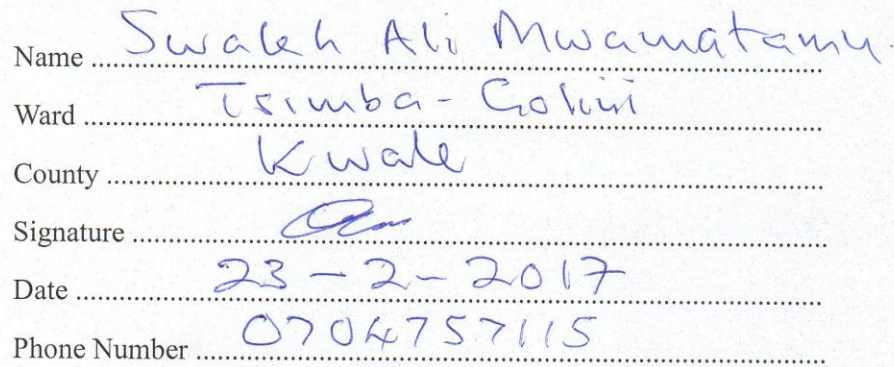 Name Swaleh Ali Mwamatamu
Ward Tsimba-Golini
County Kwale
Signature
Date 23-2-2017
Phone Number 0704757115